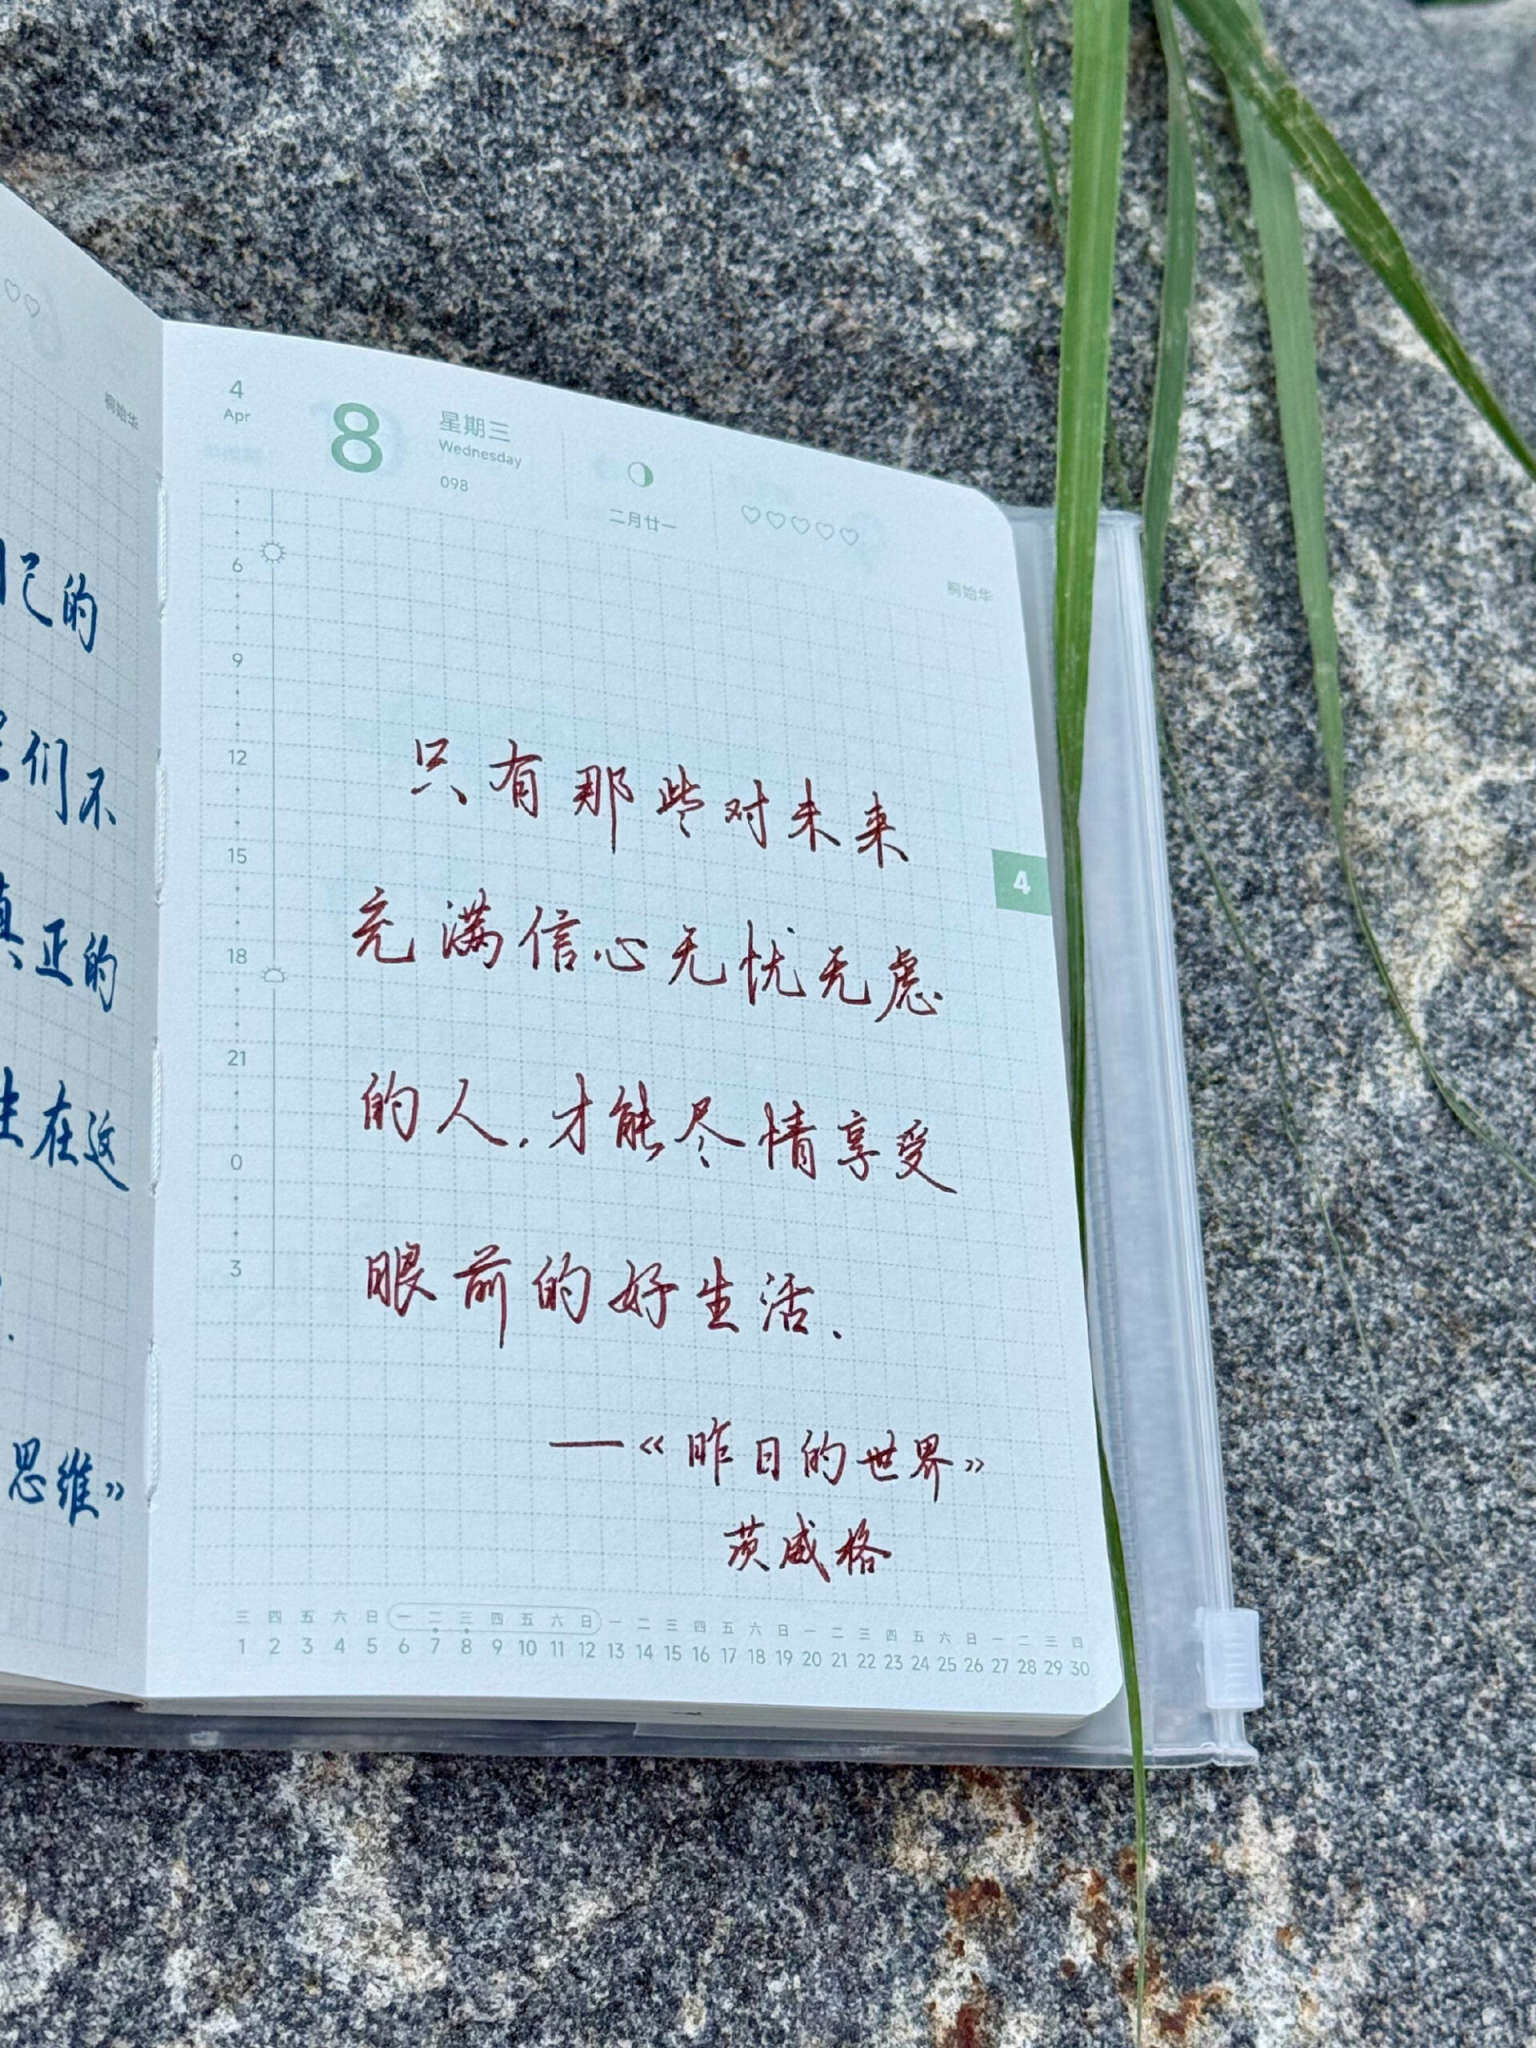 桐始华
己的
们不
真正的
生在这
思维》
4
Apr
8
星期三
Wednesday
098
二月廿一
桐始华
6
9
12
15
18
21
0
3
只有那些对未来
充满信心无忧无虑
的人,才能尽情享受
眼前的好生活.
—《昨日的世界》
茨威格
4
三 四 五 六 日 一 二 三 四 五 六 日 一 二 三 四 五 六 日 一 二 三 四 五 六 日 一 二 三 四
1 2 3 4 5 6 7 8 9 10 11 12 13 14 15 16 17 18 19 20 21 22 23 24 25 26 27 28 29 30